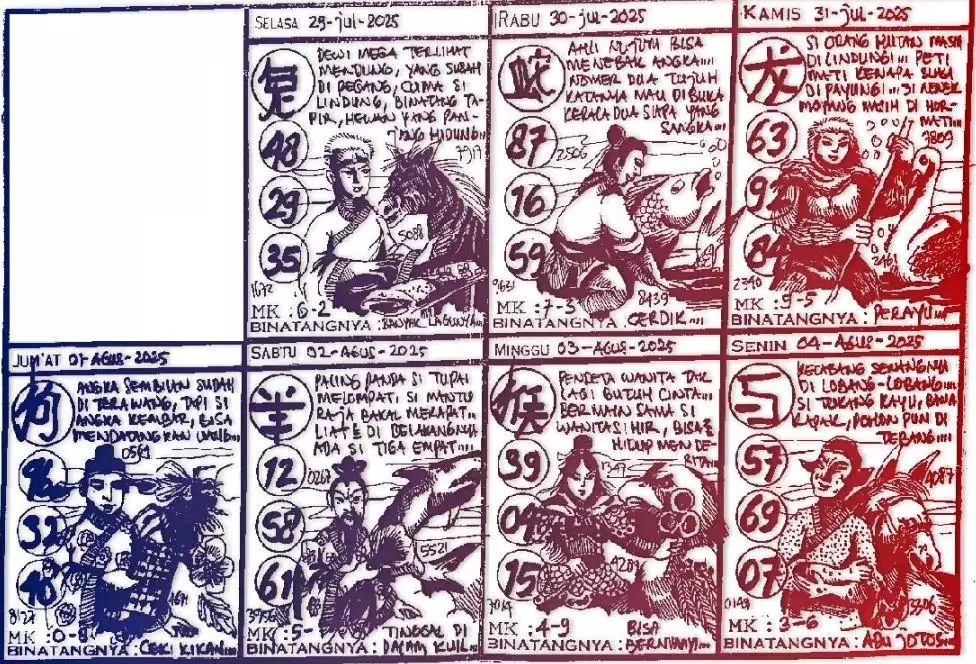 SELASA 29-JUL-2025
兔
DEWI MEGA TERLIHAT
MENDUNG, YANG SUDAH
DI PEGANG, CUMA SI
LINDUNG, BINATANG TA-
PIR, HEWAN YANG PAN-
JANG HIDUNG...
7917
48
29
35
5088
1672
MK : 6-2
BINATANGNYA : BANYAK LAGUNYA...
RABU 30-JUL-2025
蛇
AHLI NUJUM BISA
MENEBAK ANGKA....
NOMER DUA TUJUH
KATANYA MAU DI BUKA
KEPALA DUA SIAPA YANG
SANGKA....
2506
87
16
59
9631
8439
MK : 7-3
BINATANGNYA : CERDIK....
KAMIS 31-JUL-2025
龙
SI ORANG HUTAN MASIH
DI LINDUNGI... PETI
MATI KENAPA SUKA
DI PAYUNGI... SI NENEK
MOYANG MASIH DI HOR-
MATI...
7809
63
92
84
2461
2340
MK : 9-5
BINATANGNYA : PERAYU....
JUM'AT 01-AGUS-2025
狗
ANGKA SEMBILAN SUDAH
DI TERAWANG, TAPI SI
ANGKA KEMBAR, BISA
MENDATANGKAN
32
MK : 0-8
BINATANGNYA : CEKI KIKAN....
SABTU 02-AGUS-2025
羊
PALING PANDA SI TUPAI
MELOMPAT, SI MANTU
RAJA BAKAL MERAPAT..
LIAT DI BELAKANGNYA
ADA SI TIGA EMPAT....
12
58
61
5521
MK : 5-
BINATANGNYA : TINGGAL DI
DALAM KUIL...
MINGGU 03-AGUS-2025
猴
PENDETA WANITA TAK
LAGI BUTUH CINTA...
BERMAIN SAMA SI
WANITA SIHIR, BISA2
HIDUP MENDE-
RITA...
1347
39
04
15
7014
MK : 4-9
BINATANGNYA : BISA
BERNYANYI...
SENIN 04-AGUS-2025
KECABANG SENANGNYA
DI LOBANG-LOBANG....
SI TUKANG KAYU, BAWA
KAPAK, POHON PUN DI
TEBANG....
57
69
07
MK : 3-6
BINATANGNYA : ADU JOTOS...